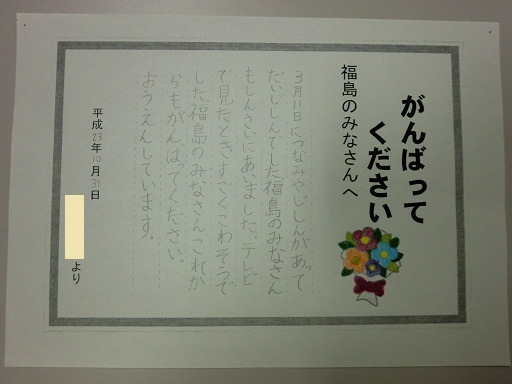 がんばって
ください
福島のみなさんへ
3月11日につなみやじしんがあって
だいじしんでした福島のみなさん
もしんさいにあいました。テレビ
で見たときすごくこわそうで
した福島のみなさんこれか
らもがんばってください。
おうえんしています。
平成23年10月31日
より